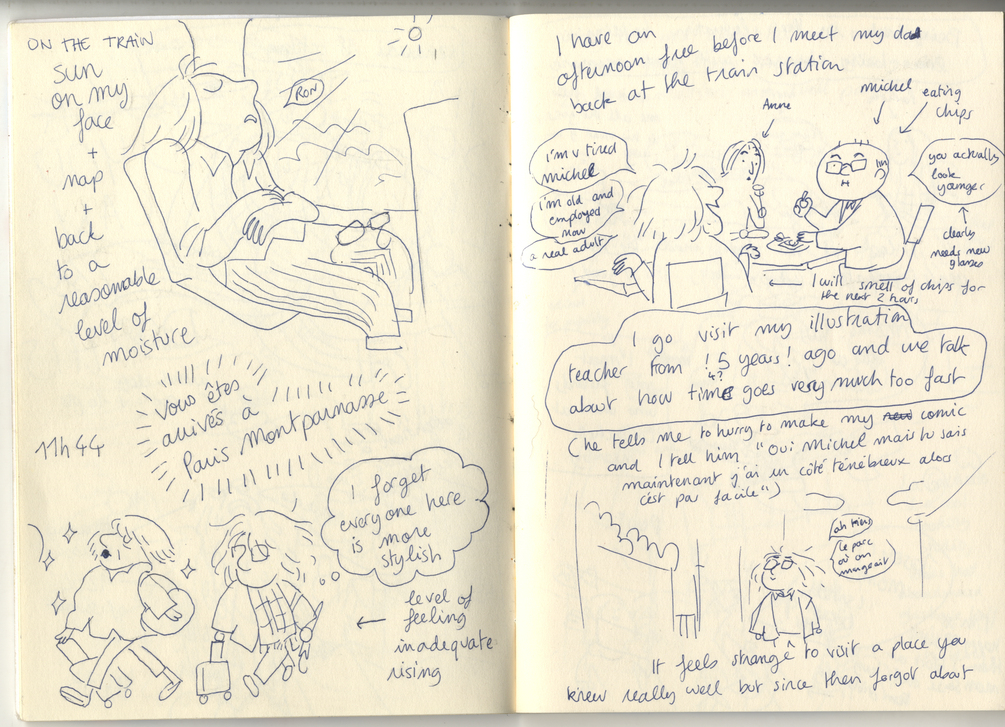 ON THE TRAIN
sun
on my
face
+
nap
+
back
to a
reasonable
level of
moisture
RON
vous êtes
arrivés à
Paris Montparnasse
11h44
I forget
everyone here
is more
stylish
← level of
feeling
inadequate
rising
I have an
afternoon free before I meet my dad
back at the train station
Anne
michel
eating
chips
i'm v tired
michel
i'm old and
employed
now
a real adult
you actually
look
younger
clearly
needs new
glasses
← I will smell of chips for
the next 2 hours
I go visit my illustration
teacher from !5 years! ago and we talk
4?
about how time goes very much too fast
(he tells me to hurry to make my comic
and I tell him "Oui Michel mais tu sais
maintenant j'ai un côté ténébreux alors
c'est pas facile")
ah tiens
le parc
où on
mangeait
It feels strange to visit a place you
knew really well but since then forgot about